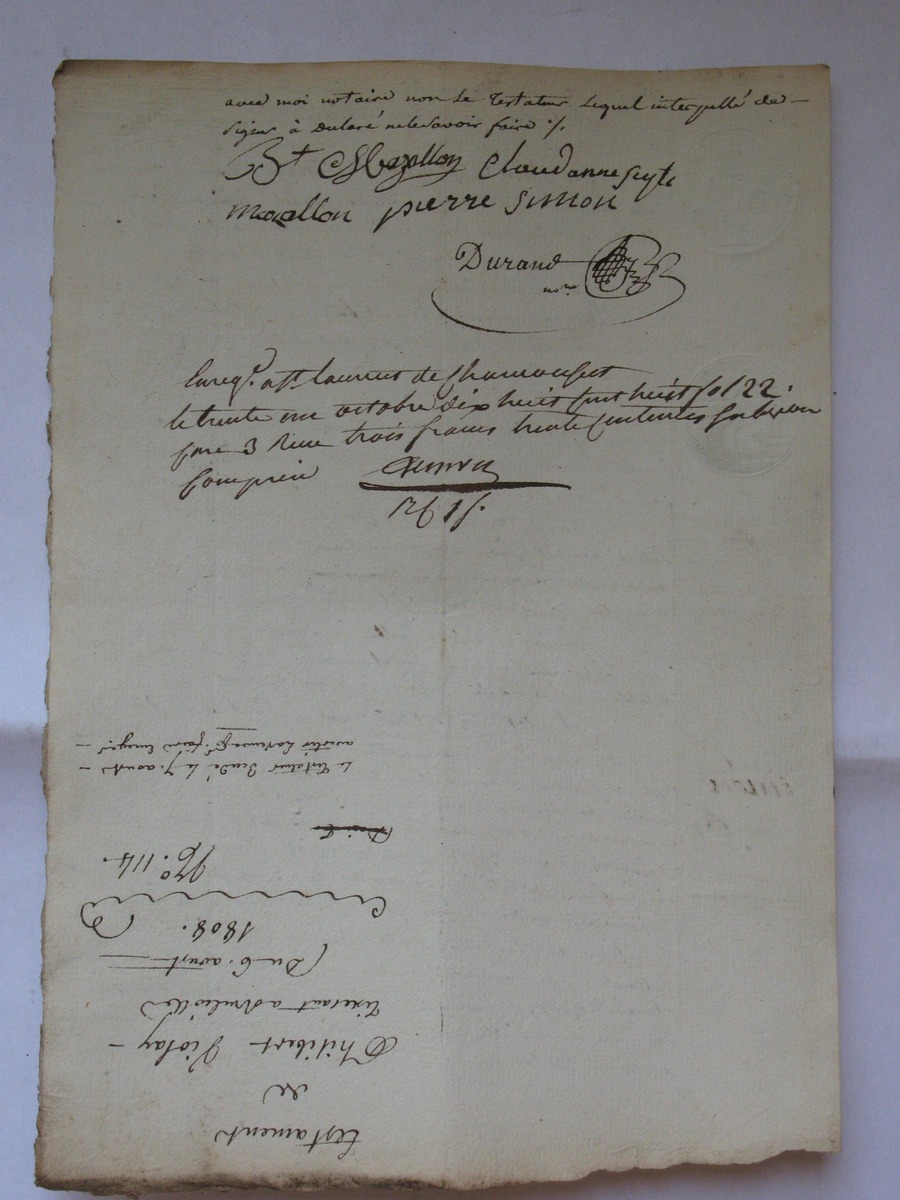 avec moi notaire non le testateur lequel interpellé de
signer à declaré ne le savoir faire ./.
Bt Mazallon Claud anne
mazallon pierre simon
Durand
nore
Enregt. a St. laurent de Chamousset
le trente un octobre dix huit cent huit fol 22.
case 3 Reçu trois francs trente centimes subvon
Comprise
testament
de
Philibert Violay
tixerant a
Du 6. aoust
1808.
No. 114.
Le testateur décédé le 7. aoust